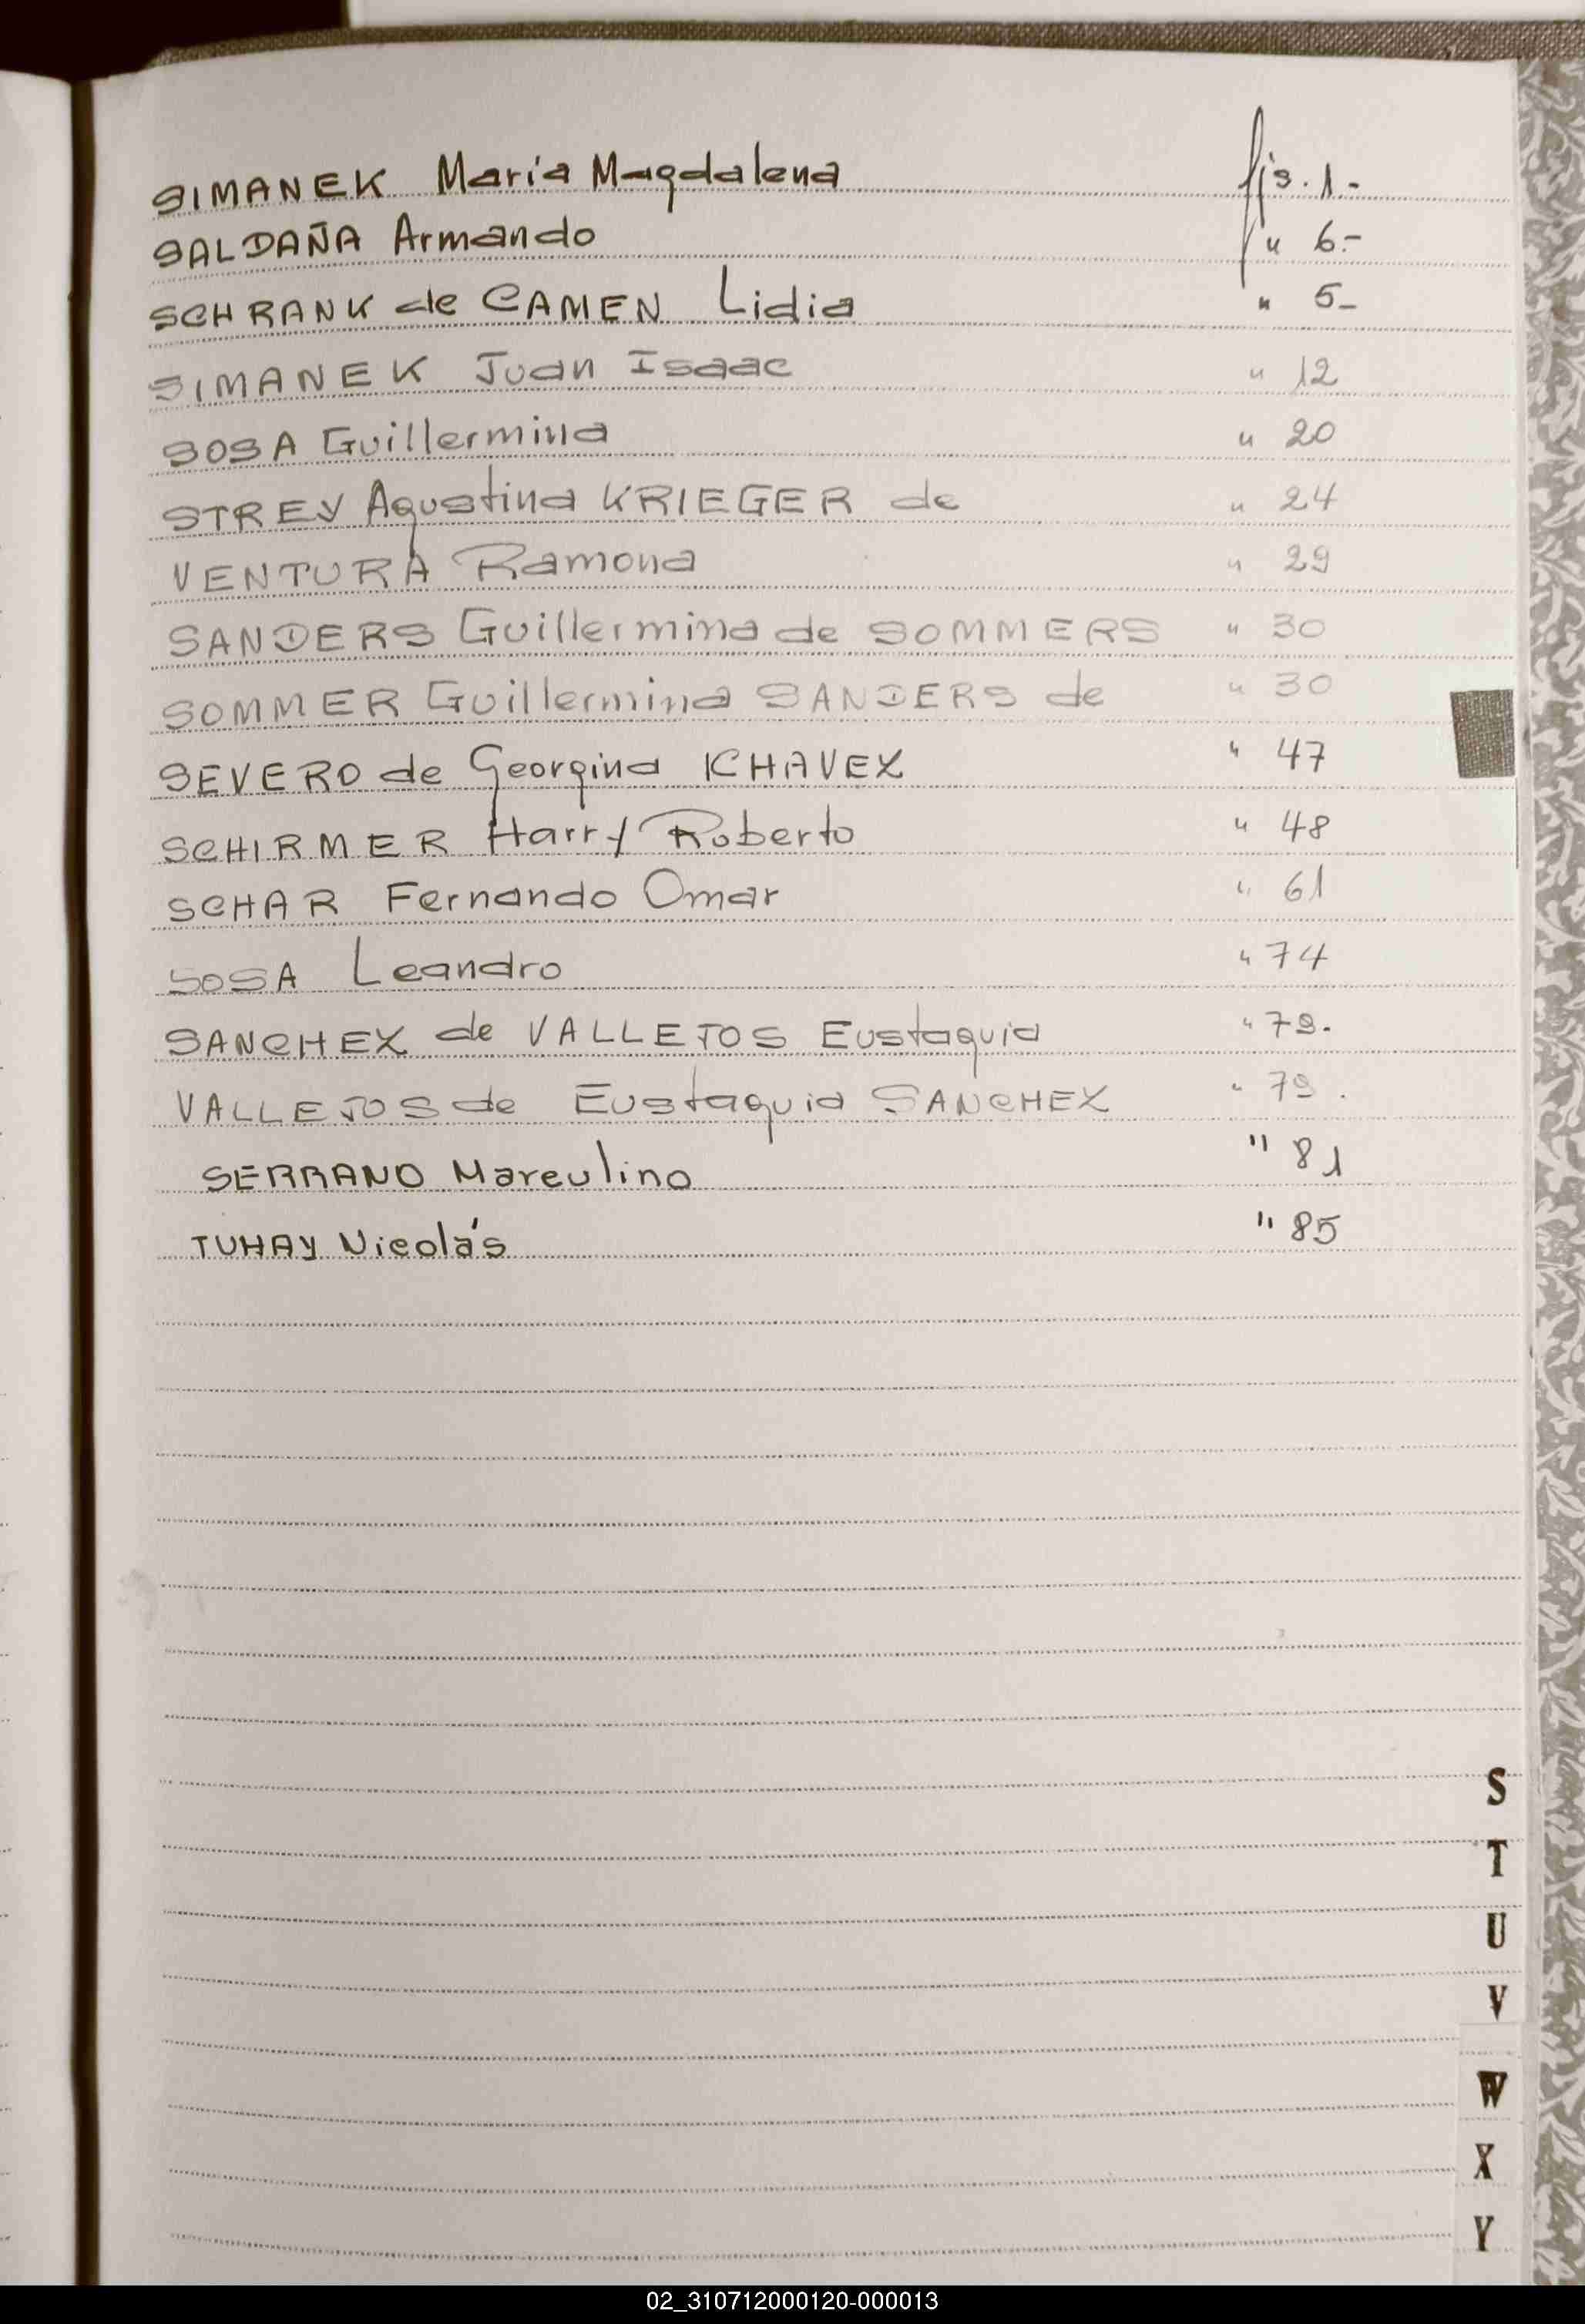 SIMANEK María Magdalena fjs. 1.-
SALDAÑA Armando " 6.-
SCHRANK de CAMEN Lidia " 5-
SIMANEK Juan Isaac " 12
SOSA Guillermina " 20
STREY Agustina KRIEGER de " 24
VENTURA Ramona " 29
SANDERS Guillermina de SOMMERS " 30
SOMMER Guillermina SANDERS de " 30
SEVERO de Georgina CHAVEZ " 47
SCHIRMER Harry Roberto " 48
SCHAR Fernando Omar " 61
SOSA Leandro " 74
SANCHEZ de VALLEJOS Eustaquia " 79.
VALLEJOS de Eustaquia SANCHEZ " 79.
SERRANO Marculino " 81
TUHAY Nicolás " 85
S
T
U
V
W
X
Y
02_310712000120-000013